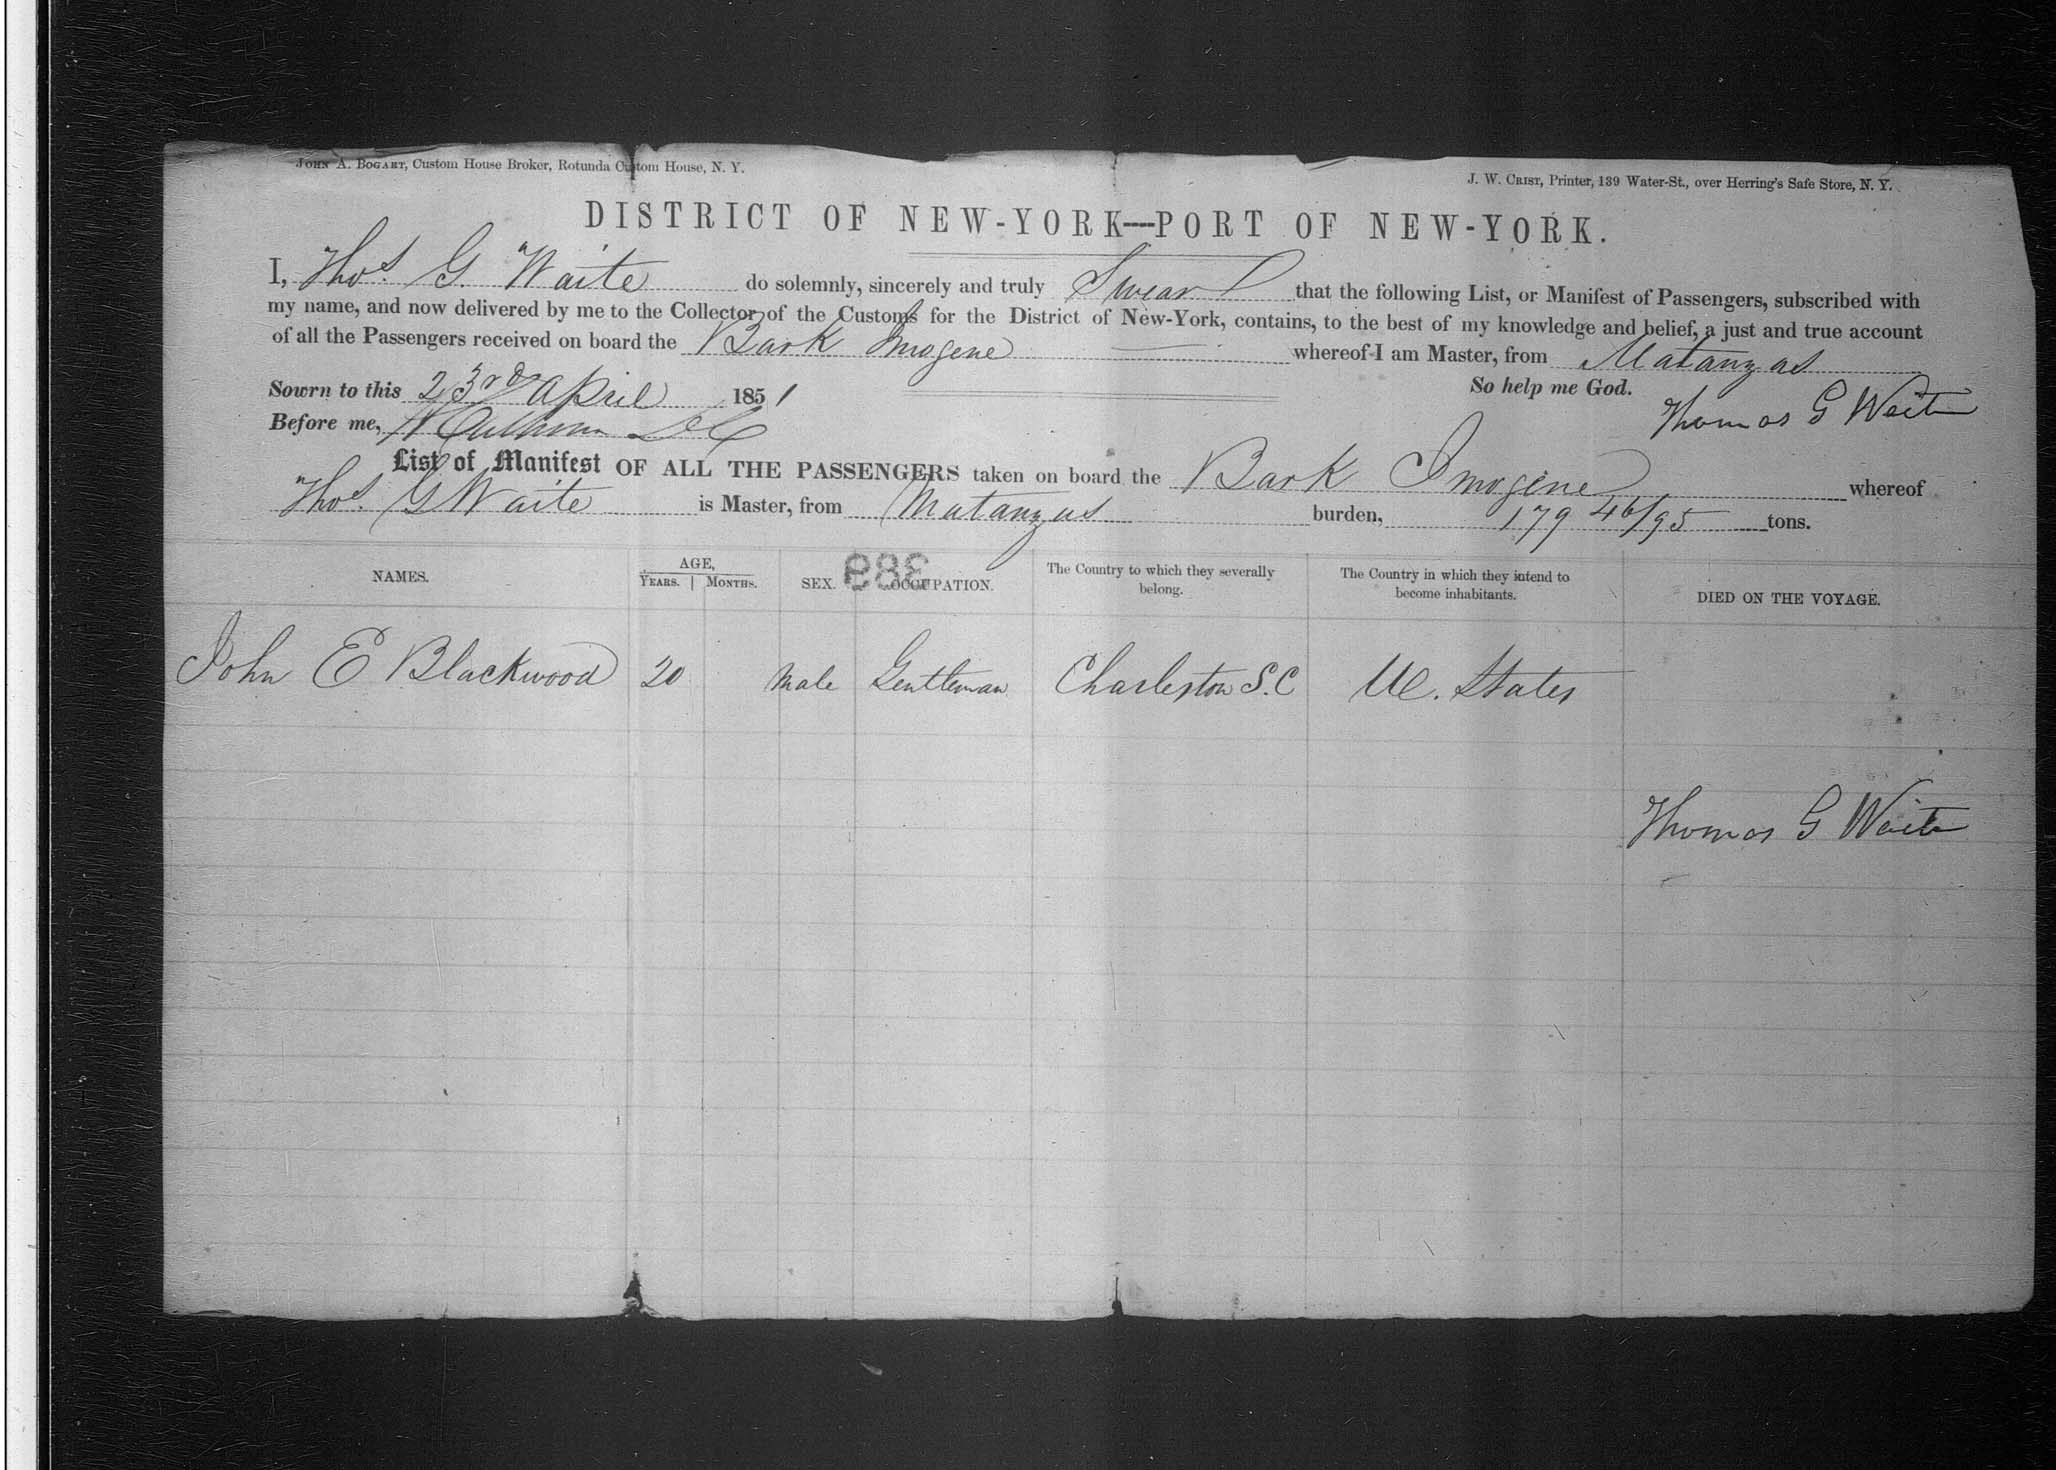 JOHN A. BOGART, Custom House Broker, Rotunda Custom House, N. Y.
J. W. CRIST, Printer, 139 Water-St., over Herring's Safe Store, N. Y.
DISTRICT OF NEW-YORK—PORT OF NEW-YORK.
I, Thos. G. Waite do solemnly, sincerely and truly Swear that the following List, or Manifest of Passengers, subscribed with
my name, and now delivered by me to the Collector of the Customs for the District of New-York, contains, to the best of my knowledge and belief, a just and true account
of all the Passengers received on board the Bark Imogene whereof I am Master, from Matanzas
Sowrn to this 23rd April 1851 So help me God.
Before me, Thomas G Waite
List of Manifest OF ALL THE PASSENGERS taken on board the Bark Imogene whereof
Thos. G Waite is Master, from Matanzas burden, 179 46/95 tons.
NAMES. AGE, YEARS. | MONTHS. SEX. OCCUPATION. The Country to which they severally belong. The Country in which they intend to become inhabitants. DIED ON THE VOYAGE.
389
John E Blackwood 20 Male Gentleman Charleston S.C U. States
Thomas G Waite